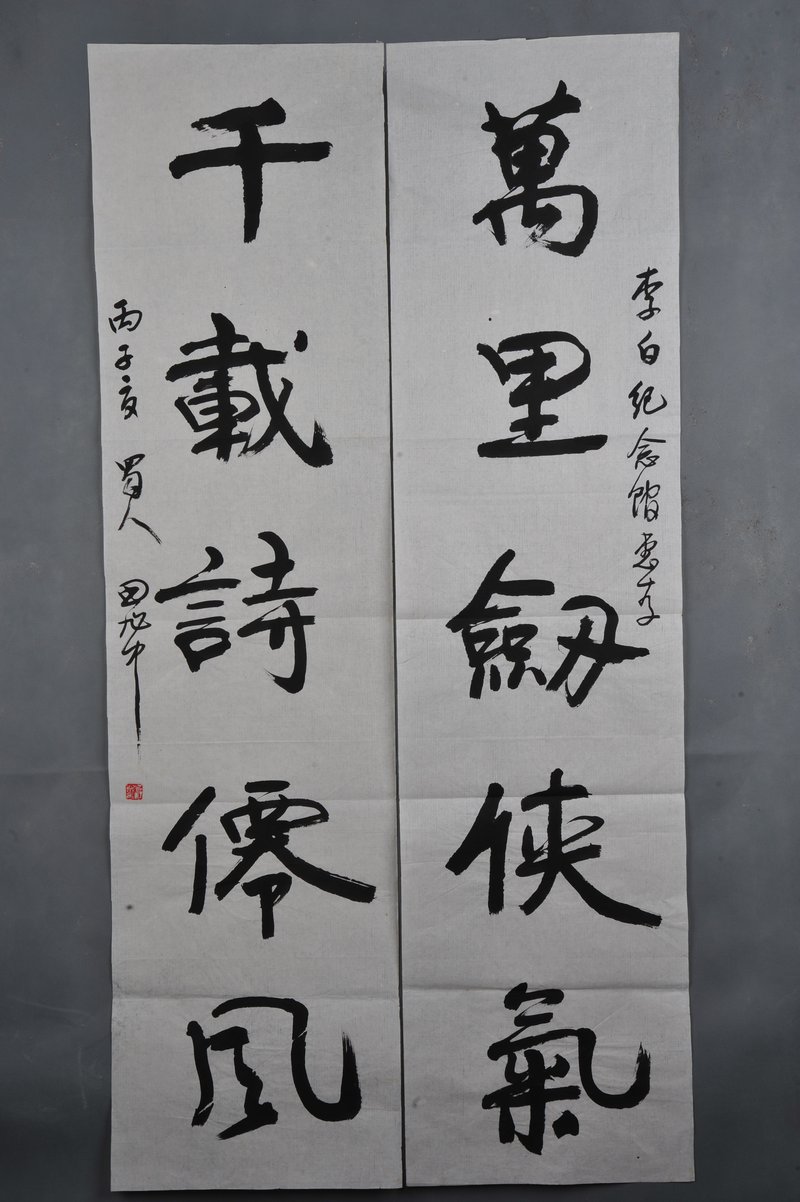 李白纪念馆惠存
萬里劍俠氣
千載詩僊風
丙子夏 蜀人 田旭中